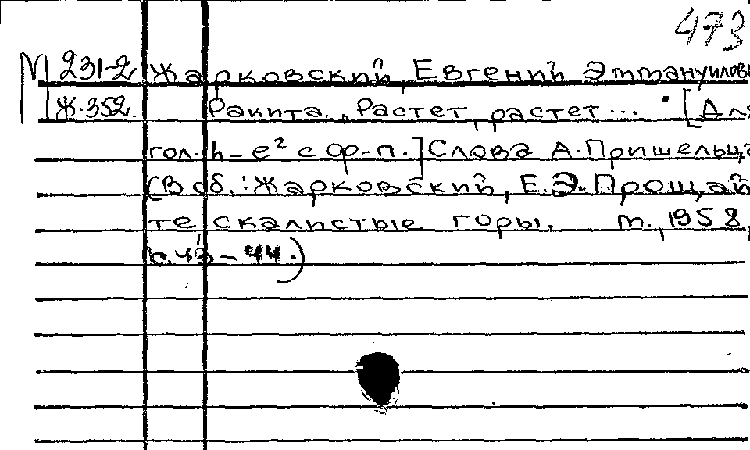 473
М 231-2 Жарковский, Евгений Эммануилови
Ж.352 Ракита. Растет, растет... [Для
гол. h-e² с ф-п.] Слова А. Пришельца
(В сб.: Жарковский, Е.Э. Прощай
те скалистые горы. М., 1958,
с.43-44.)